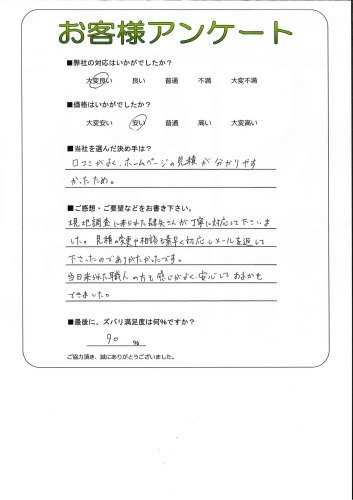 お客様アンケート
■弊社の対応はいかがでしたか？
大変良い 良い 普通 不満 大変不満
■価格はいかがでしたか？
大変安い 安い 普通 高い 大変高い
■当社を選んだ決め手は？
口コミがよく、ホームページの見積が分かりやす
かったため。
■ご感想・ご要望などをお書き下さい。
現地調査に来られた さんが丁寧に対応して下さいま
した。見積の変更や相談も素早く対応しメールを返して
下さったのでありがたかったです。
当日来られた職人の方も感じがよく、安心しておまかせ
できました。
■最後に、ズバリ満足度は何%ですか？
90 %
ご協力頂き、誠にありがとうございました。